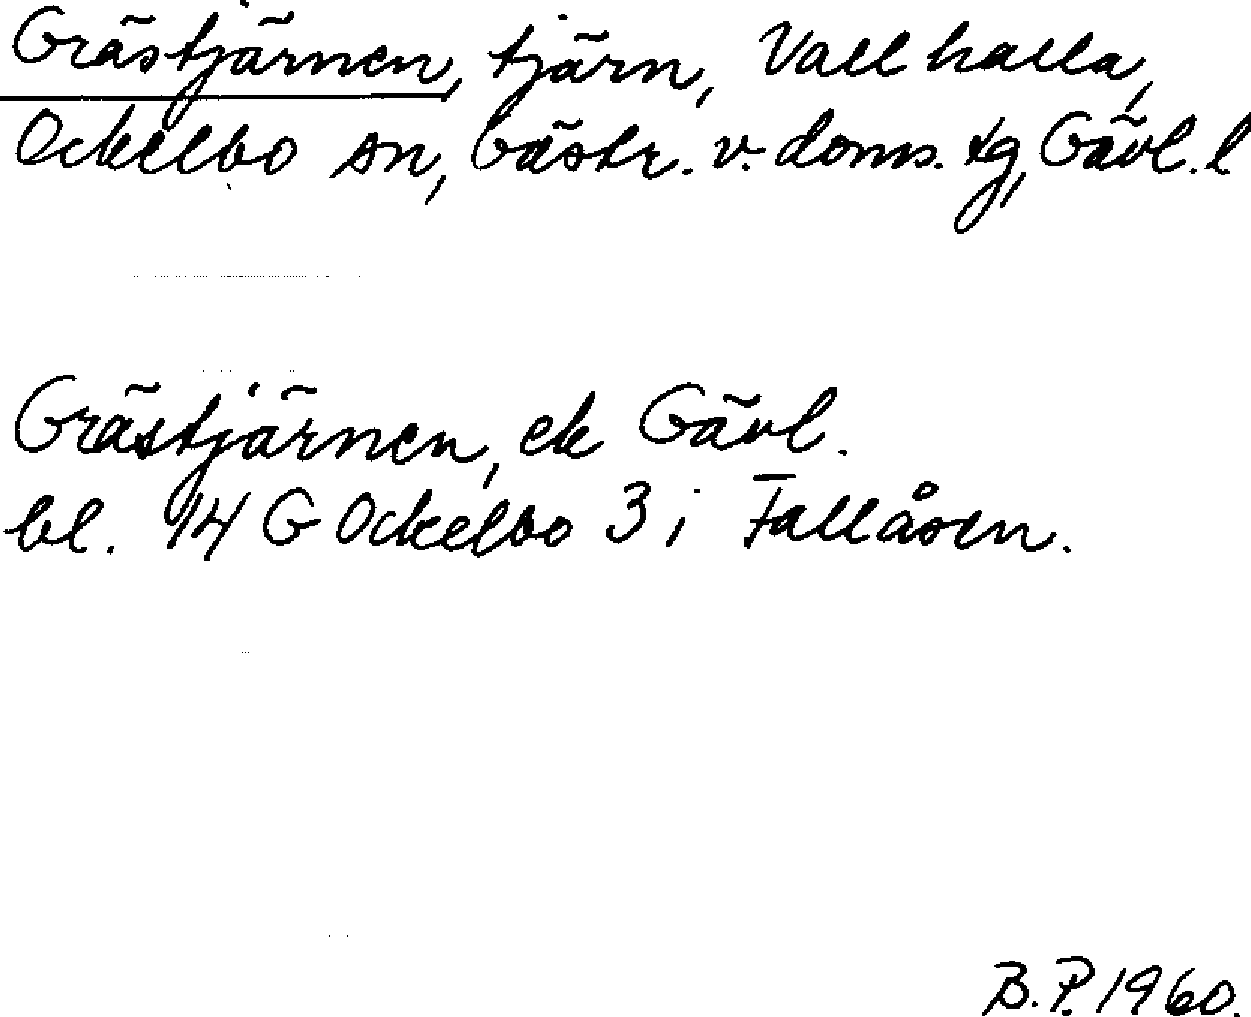 Grästjärnen, tjärn, Vallhalla,
Ockelbo sn, Gästr. v. doms. tg, Gävl. l
Grästjärnen, ek Gävl.
bl. 14 G Ockelbo 3 i Fallåsen.
B.P. 1960.